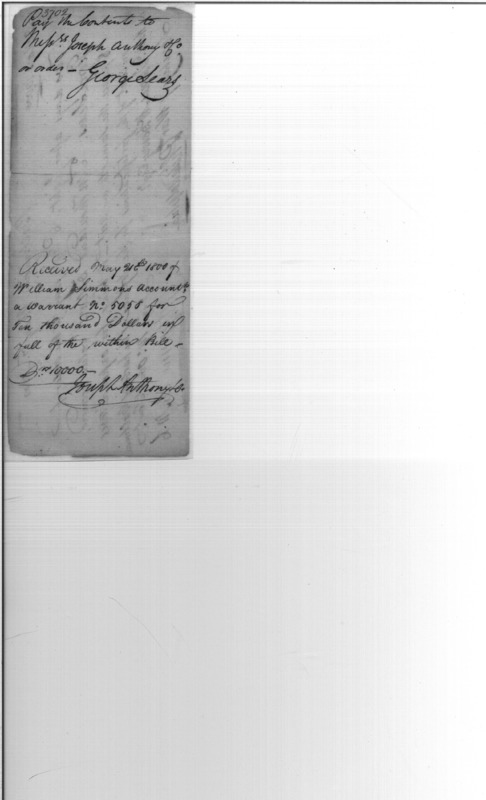 3709
Pay the Contents to
Messrs Joseph Anthony & Co
or order — George Sears
Received, May 21st 1800 of
William Simmons Accountt
a Warrant No. 5058 for
Ten thousand Dollars in
full of the within Bill —
Drs 10000,—
Joseph Anthony & Co